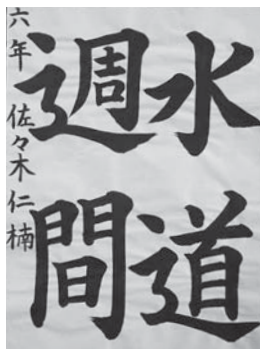 水道
週間
六年 佐々木仁楠